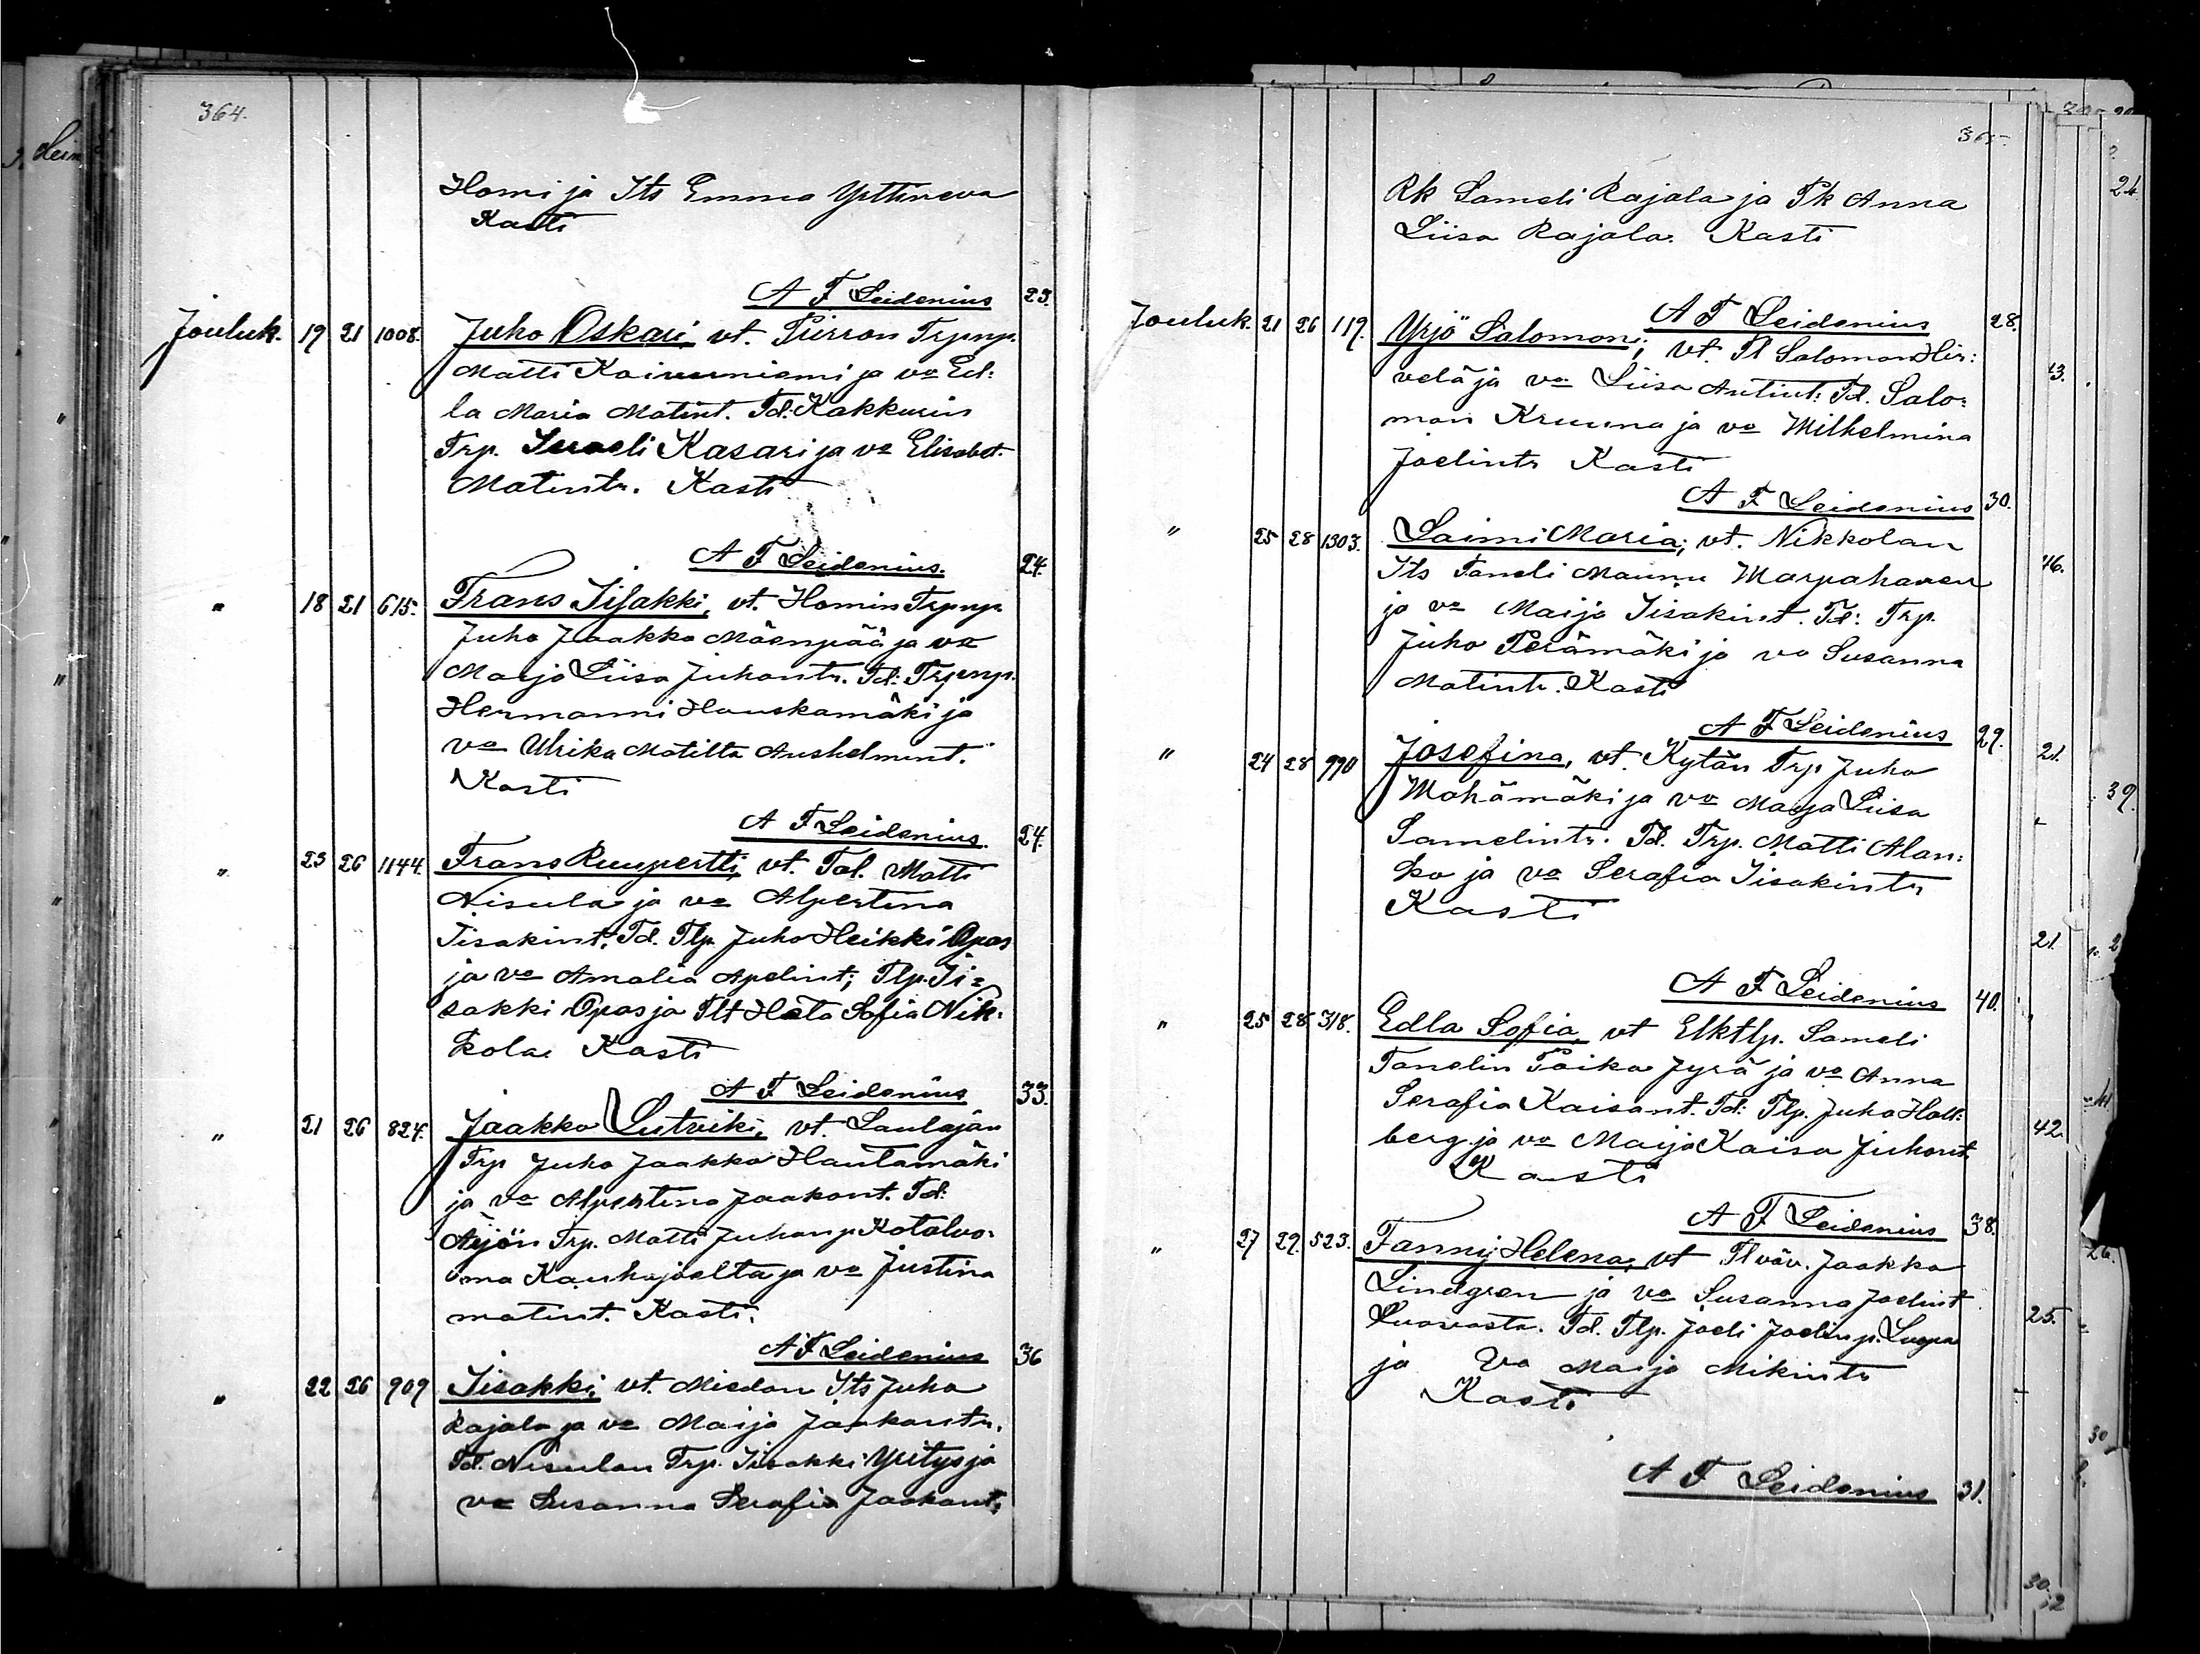 364.
Homi ja Its Emma Yttineva
Kasti
A F Leidenius 23.
Jouluk. 19 21 1008. Juho Oskari, vt. Piirron Trpnp.
Matti Koivuniemi ja vo Ed:
la Maria Matint. Td: Kakkurin
Trp. Israeli Kasari ja vo Elisabet
Matintr. Kasti
A F Leidenius. 24.
" 18 21 615. Frans Iisakki, vt. Homin Trpnp.
Juho Jaakko Mäenpää ja vo
Maija Liisa Juhontr. Td: Trpnp.
Hermanni Hauskamäki ja
vo Ulrika Matilta Anshelmint.
Kasti
A F Leidenius. 24.
" 23 26 1144. Frans Ruupertti, vt. Tal. Matti
Nisula ja vo Alpertina
Iisakint. Td. Tlp. Juho Heikki Opas
ja vo Amalia Apelint; Tlp. Ii=
sakki Opas ja Tlt Heta Sofia Nik:
kola Kasti
A F Leidenius 33.
" 21 26 824. Jaakko Lutviki, vt. Laulajan
Trp Juho Jaakko Hautamäki
ja vo Alpertina Jaakont. Td:
Äijön Trp. Matti Juhonp. Kotaluo:
ma Kauhajoelta ja vo Justina
matint. Kasti.
A F Leidenius 36
" 22 26 909 Iisakki, vt. Miedon Its Juho
Rajala ja vo Maija Jaakontr.
Td. Nisulan Trp. Iisakki Yritys ja
vo Susanna Serafia Jaakont;
365
Rk Sameli Rajala ja Pk Anna
Liisa Rajala. Kasti
A F Leidenius 28.
Jouluk. 21 26 119. Yrjö Salomon, vt. Tl Salomon Hir:
velä ja vo Liisa Antint: Td. Salo:
mon Kruuna ja vo Wilhelmina
Joelintr Kasti
A F Leidenius 30.
" 25 28 1303. Laimi Maria, vt. Nikkolan
Its Taneli Maunu Marpahanen
ja vo Maija Iisakint. Td: Trp.
Juho Perämäki ja vo Susanna
Matintr. Kasti
A F Leidenius 29.
" 24 28 990 Josefina, vt. Kytän Trp Juho
Mahämäki ja vo Maija Liisa
Samelintr. Td. Trp. Matti Alan:
ko ja vo Serafia Iisakintr
Kasti
A F Leidenius 40.
" 25 28 318. Edla Sofia, vt Elktlp. Sameli
Tanelin Poika Jyrä ja vo Anna
Serafia Kaisant. Td: Tlp. Juho Holl:
berg ja vo Maija Kaisa Juhont.
Kasti
A F Leidenius 38.
" 27 29. 523. Fanny Helena, vt Tl väv. Jaakko
Lindgren ja vo Susanna Joelint
Td. Tlp. Joeli Joelinp. Luopa
ja Vo Maija Mikintr
Kasti
A F Leidenius 31.